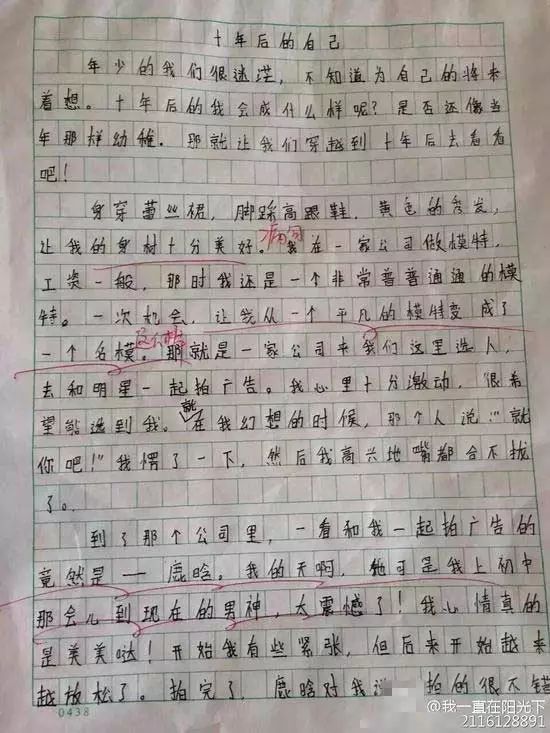 十年后的自己
年少的我们很迷茫，不知道为自己的将来
着想。十年后的我会成什么样呢？是否还像当
年那样幼稚．那就让我们穿越到十年后去看看
吧！
身穿蕾丝裙，脚踩高跟鞋，黄色的秀发，
病句
让我的身材十分美好。我在一家公司做模特，
工资一般，那时我还是一个非常普普通通的模
特。一次机会，让我从一个平凡的模特变成了
一个名模。那就是一家公司来我们这里选人，
去和明星一起拍广告。我心里十分激动，很希
就
望能选到我。在我幻想的时候，那个人说："就
你吧！"我愣了一下，然后我高兴地嘴都合不拢
了。
到了那个公司里，一看和我一起拍广告的
竟然是——鹿晗。我的天啊，他可是我上初中
那会儿到现在的男神，太震憾了！我心情真的
是美美哒！开始我有些紧张，但后来开始越来
越放松了。拍完了，鹿晗对我说 拍的很不错
0438
@我一直在阳光下
2116128891